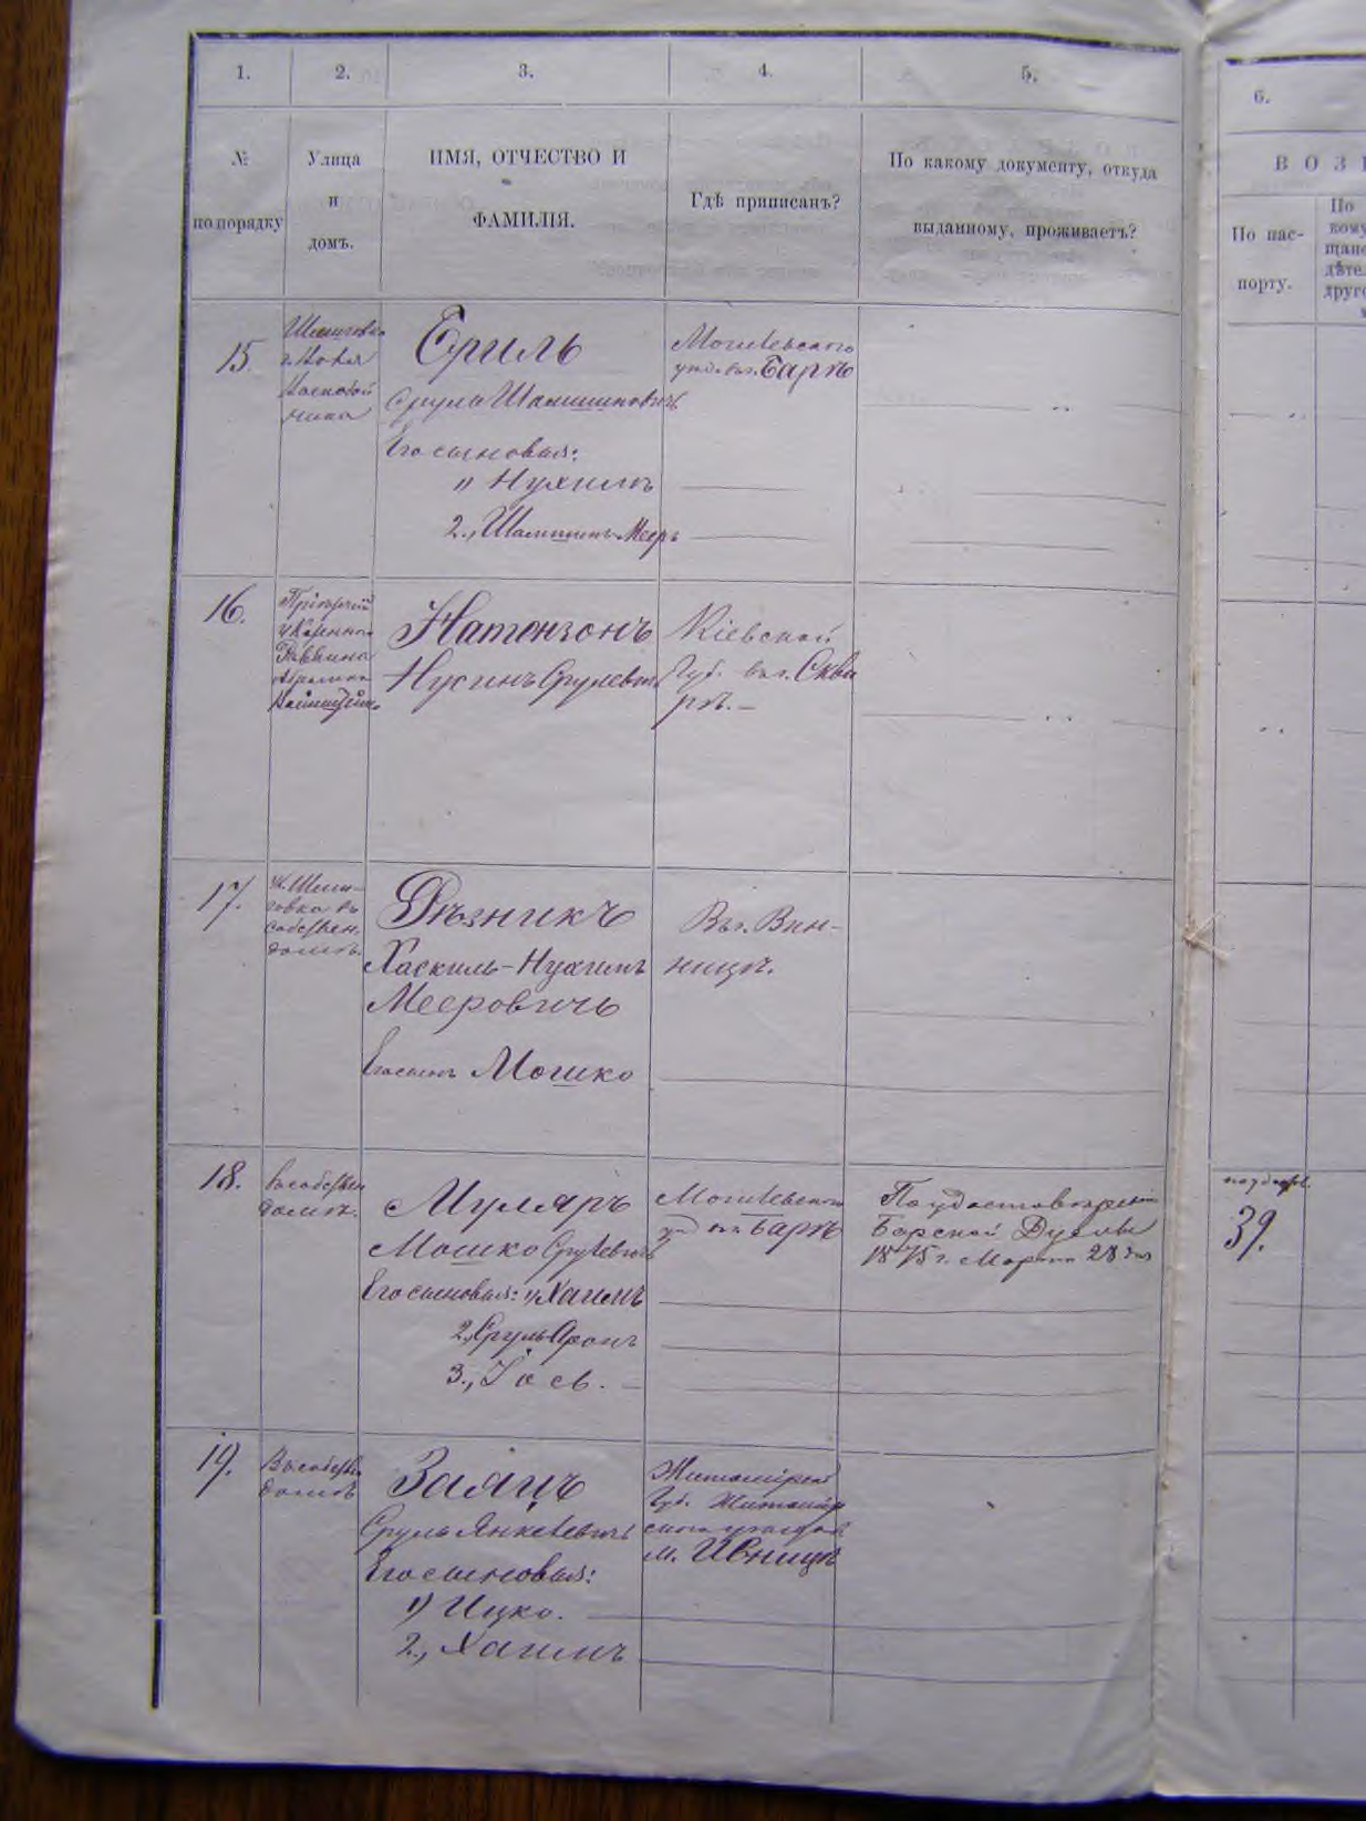 1. 2. 3. 4. 5. 6.
№ по порядку
Улица и домъ.
ИМЯ, ОТЧЕСТВО И
ФАМИЛІЯ.
Гдѣ приписанъ?
По какому документу, откуда
выданному, проживаетъ?
По пас-
порту.
15.
Ериль
Сруль Шамшиновичъ
Его сыновья:
1) Нухимъ
2., Шамшинъ-Мееръ
Могилевского
уѣзда въ г. Барѣ
16.
Натензонъ
Нусинъ Срулевичъ
Кіевской
Губ. въ г. Сквы
рѣ. —
17.
м. Шеин-
говка въ
собствен.
домѣ.
Рѣзникъ
Хаскиль-Нухимъ
Мееровичъ
Его сынъ Мошко
Въ г. Вин-
ницѣ.
18.
В собствен
домѣ.
Муляръ
Мошко Срулевичъ
Его сыновья: 1) Хаимъ
2., Сруль Аронъ
3., Іось. —
Могилевского
уѣзд въ г. Барѣ
По удостоверенію
Барской Думы
1875 г. Марта 28 дня
39.
19.
В собствен
домѣ
Заяцъ
Сруль Янкелевичъ
Его сыновья:
1) Ицко.
2., Хаимъ
Житомирской
Губ. Житомир
ского уезда
м. Ивницѣ